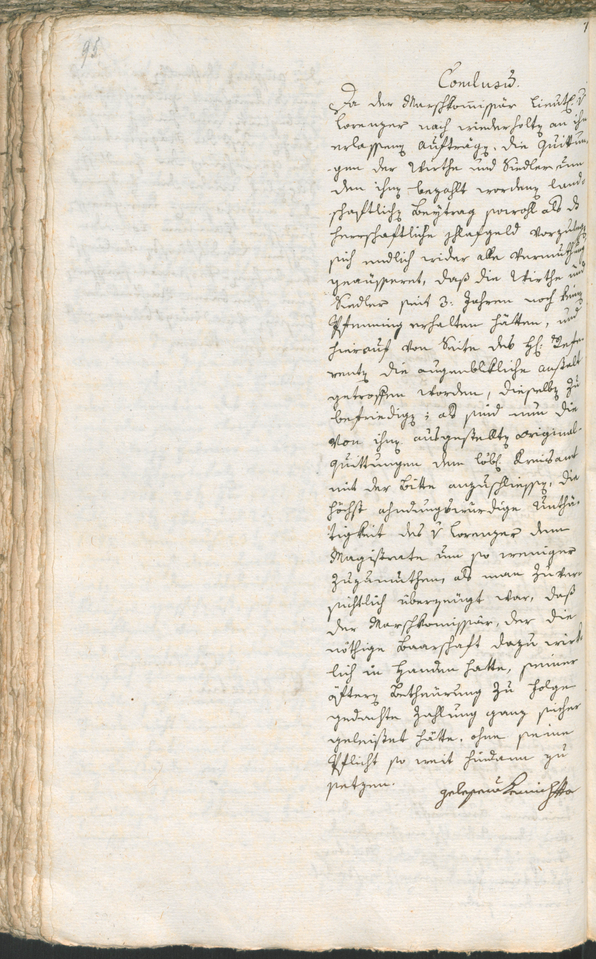 95
Conclusum.
Da der Marschkommissär Lieut. v
Lorenzer nach wiederholten an ihn
erlassenen Aufträgen, die Quittun-
gen der Wirthe und Siedler um
den ihnen bezahlt wordenen land-
schaftlichen Beytrag sowohl als das
herrschaftliche Schlafgeld vorzulegen
sich endlich wider alle Vermuthung
geäusseret, daß die Wirthe und
Siedler seit 3. Jahren noch keinen
Pfenning erhalten hätten, und
hierauf von Seite des H: Refe-
renten die augenblikliche Anstalt
getroffen worden, dieselben zu
befriedigen; als sind nun die
von ihnen ausgestellten Original-
Quittungen dem löbl Kreisamt
mit der Bitte anzuschliessen, die
höchst ahndungswürdige Unthä-
tigkeit des v Lorenzer dem
Magistrate um so weniger
zuzumuthen, als man zuver-
sichtlich überzeugt war, daß
der Marschkomissär, der die
nöthige Baarschaft dazu wirk-
lich in Handen hatte, seiner
öftern Betheurung zu Folge
gedachte Zahlung ganz sicher
geleistet hätte, ohne seine
Pflicht so weit hindann zu
setzen.
gelesen